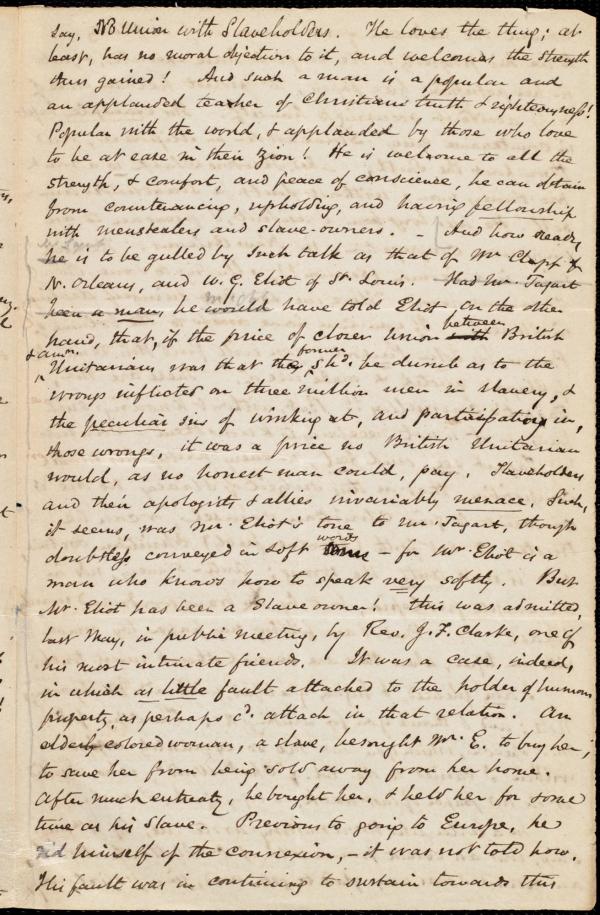 say, No Union with Slaveholders. He loves the thing; at
least, has no moral objection to it, and welcomes the strength
thus gained! And such a man is a popular and
an applauded teacher of Christian truth & righteousness!
Popular with the world, & applauded by those who love
to be at ease in their Zion! He is welcome to all the
strength, & comfort, and peace of conscience, he can obtain
from countenancing, upholding, and having fellowship
with menstealers and slave-owners. – And how ready
he is to be gulled by such talk as that of Mr. Clapp of
N. Orleans, and W. G. Eliot of St. Louis. Had Mr. Tagart
been a man, he would have told Eliot, on the other
hand, that, if the price of closer union between with British
& Amn. Unitarians was that they former shd. be dumb as to the
wrongs inflicted on three million men in slavery, &
the peculiar sins of winking at, and participation in,
those wrongs, it was a price no British Unitarian
would, as no honest man could, pay. Slaveholders
and their apologists & allies invariably menace. Such,
it seems, was Mr. Eliot's tone to Mr. Tagart, though
doubtless conveyed in soft words – for Mr. Eliot is a
man who knows how to speak very softly. But
Mr. Eliot has been a Slave owner! This was admitted,
last May, in public meeting, by Rev. J. F. Clarke, one of
his most intimate friends. It was a case, indeed,
in which as little fault attached to the holder of human
property, as perhaps cd. attach in that relation. An
elderly colored woman, a slave, besought Mr. E. to buy her,
to save her from being sold away from her home.
After much entreaty, he bought her, & held her for some
time as his slave. Previous to going to Europe, he
rid himself of the connexion, – it was not told how.
His fault was in continuing to sustain towards this